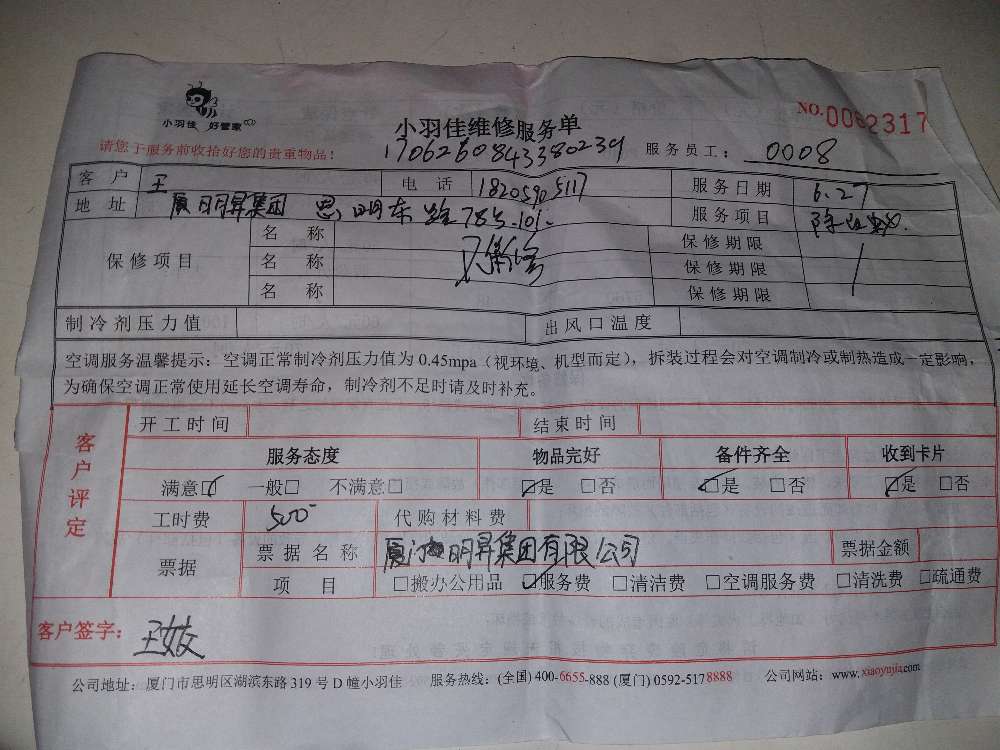 小羽佳 好管家
NO.0062317
小羽佳维修服务单
请您于服务前收拾好您的贵重物品！
17062608433380239
服务员工： 0008
客户 王 电话 18205905117 服务日期 6.27
地址 厦门明昇集团 思明东路78号-101- 服务项目
保修项目 名称 保修期限
名称 保修期限
名称 保修期限
制冷剂压力值 出风口温度
空调服务温馨提示：空调正常制冷剂压力值为 0.45mpa（视环境、机型而定），拆装过程会对空调制冷或制热造成一定影响，
为确保空调正常使用延长空调寿命，制冷剂不足时请及时补充。
客户评定
开工时间 结束时间
服务态度 物品完好 备件齐全 收到卡片
满意☑ 一般□ 不满意□ ☑是 □否 ☑是 □否 ☑是 □否
工时费 500 代购材料费
票据 票据名称 厦门明昇集团有限公司 票据金额
项目 □搬办公用品 ☑服务费 □清洁费 □空调服务费 □清洗费 □疏通费
客户签字：
公司地址：厦门市思明区湖滨东路 319 号 D 幢小羽佳 服务热线：(全国) 400-6655-888 (厦门) 0592-5178888 公司网站：www.xiaoyujia.com